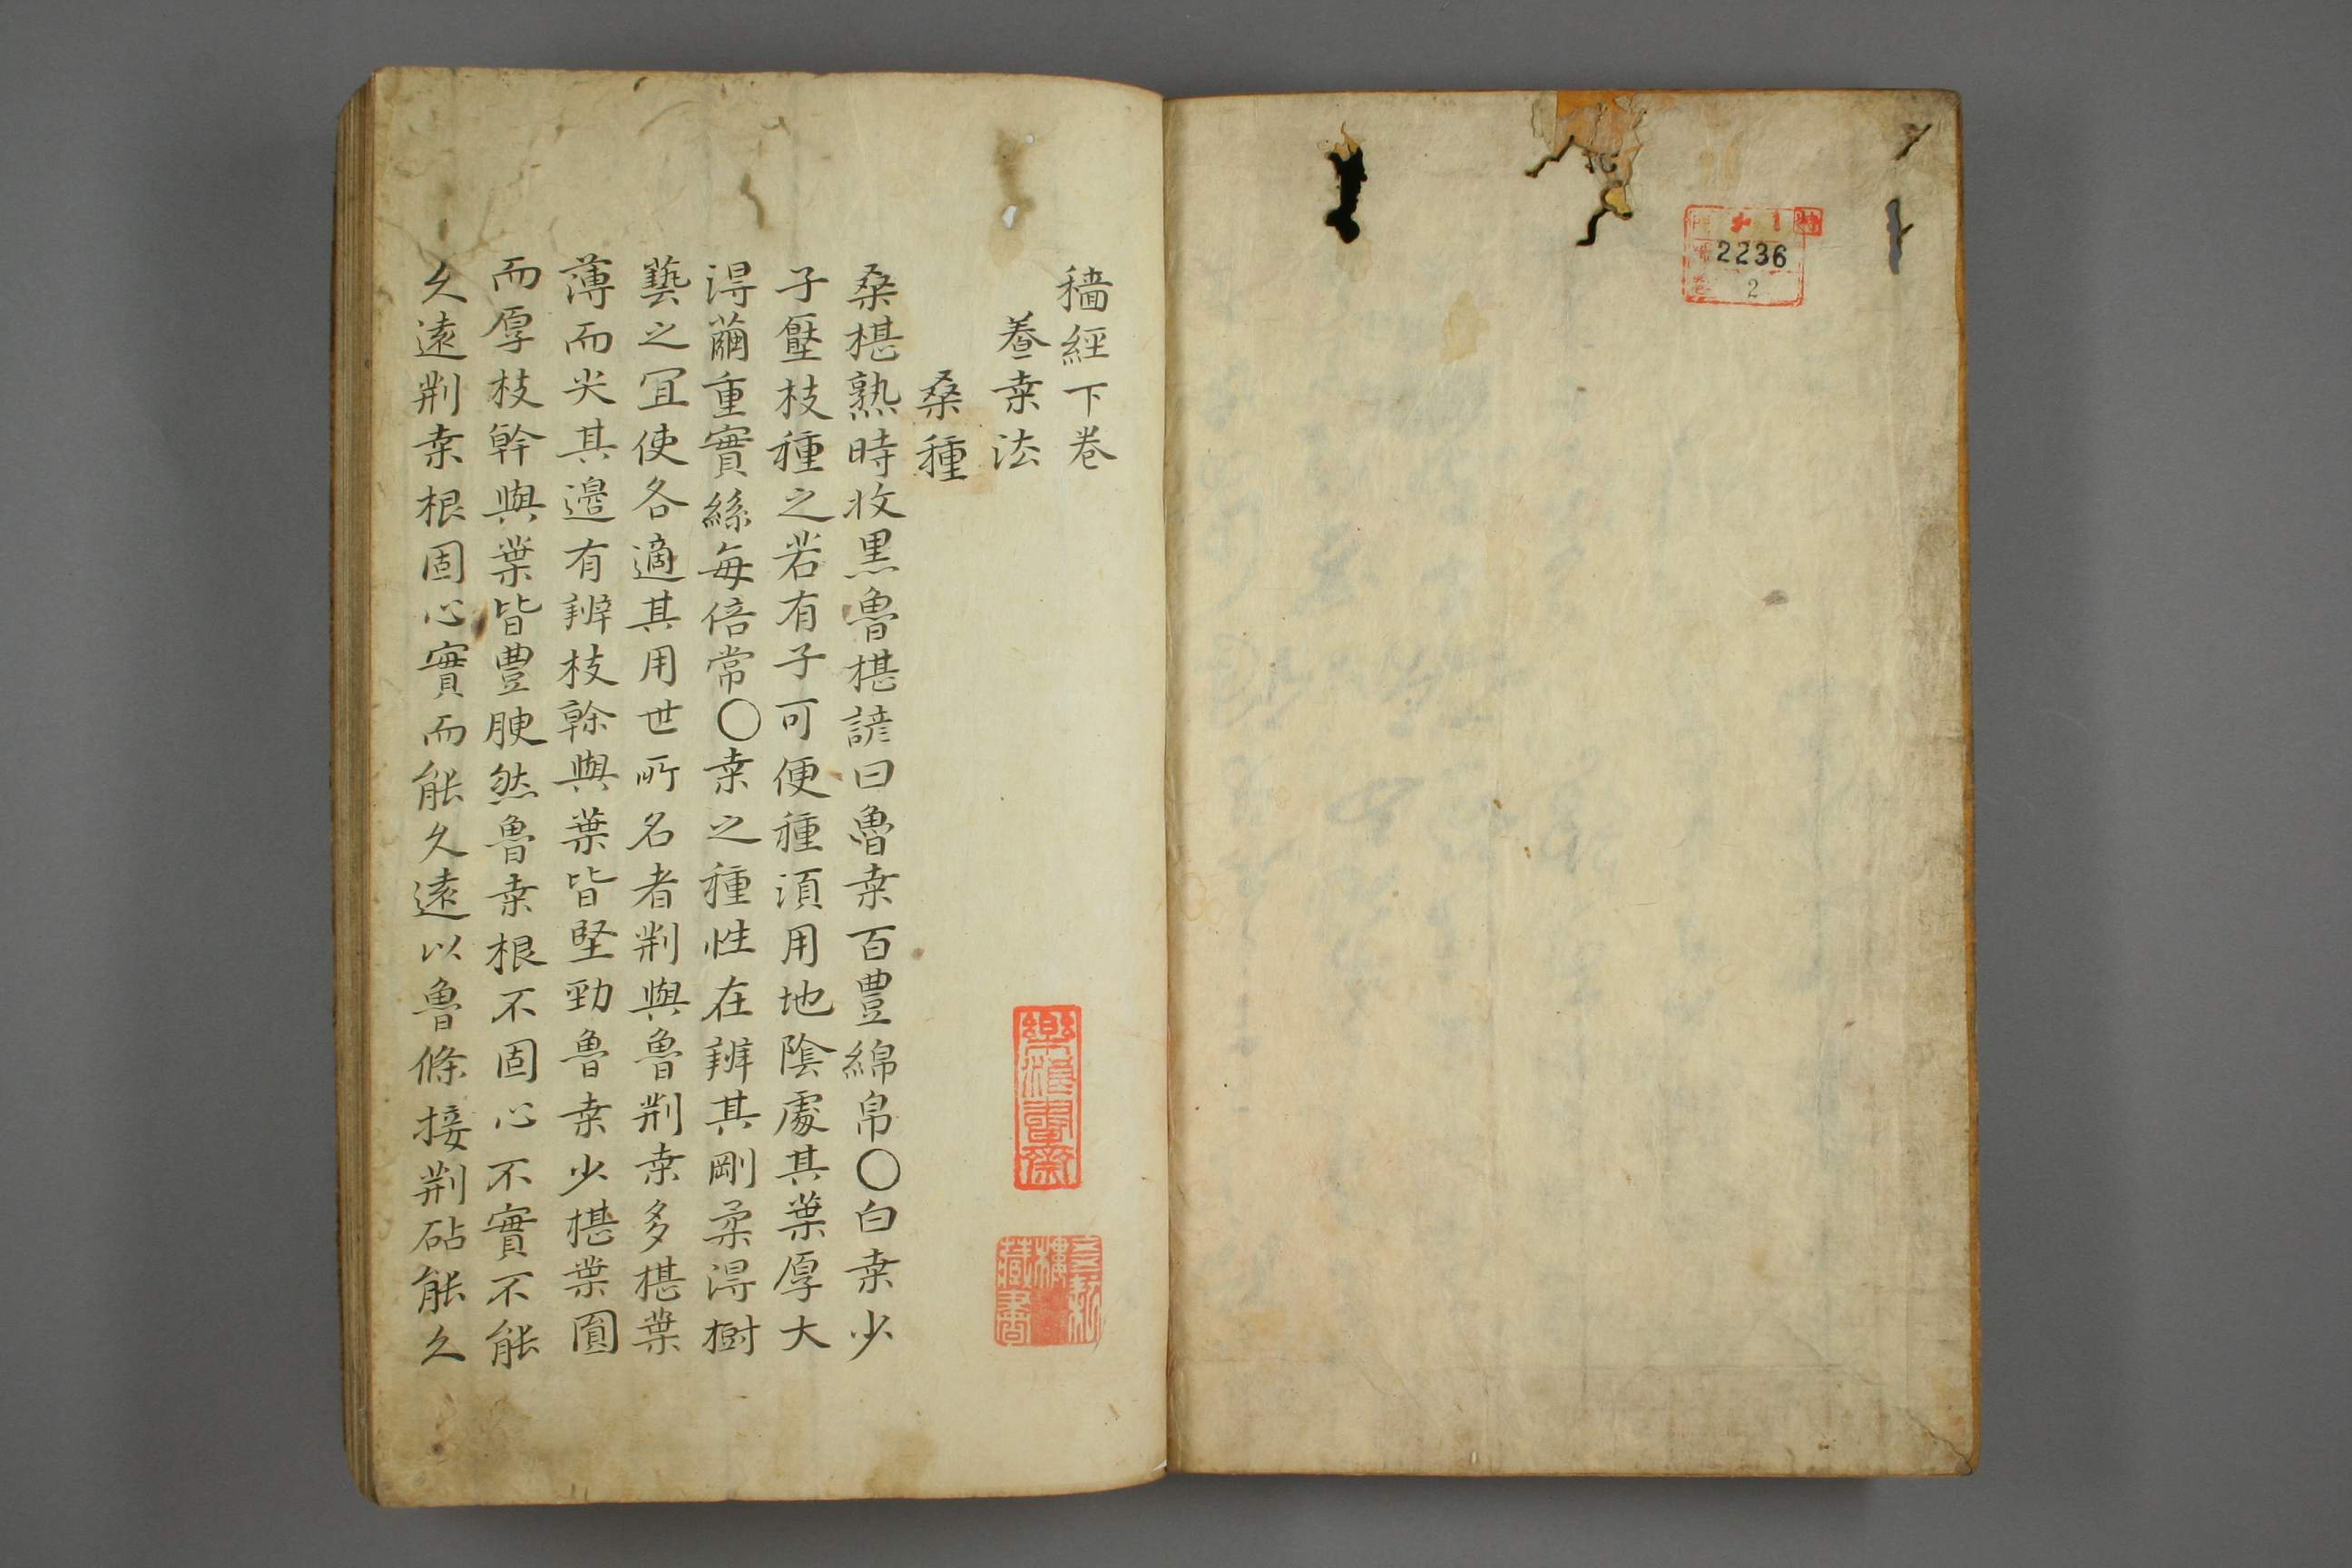 2236
2
穡經下卷
養桒法
桑種
桑椹熟時收黑魯椹諺曰魯桒百豊綿帛〇白桒少
子壓枝種之若有子可便種湏用地陰處其葉厚大
淂繭重實絲每倍常〇桒之種性在辨其剛柔淂樹
藝之冝使各適其用世所名者荆與魯荆桒多椹葉
薄而尖其邉有辨枝幹與葉皆堅勁魯桒少椹葉圓
而厚枝幹與葉皆豊腴然魯桒根不固心不實不能
久遠荆桒根固心實而能久遠以魯條接荆砧能久